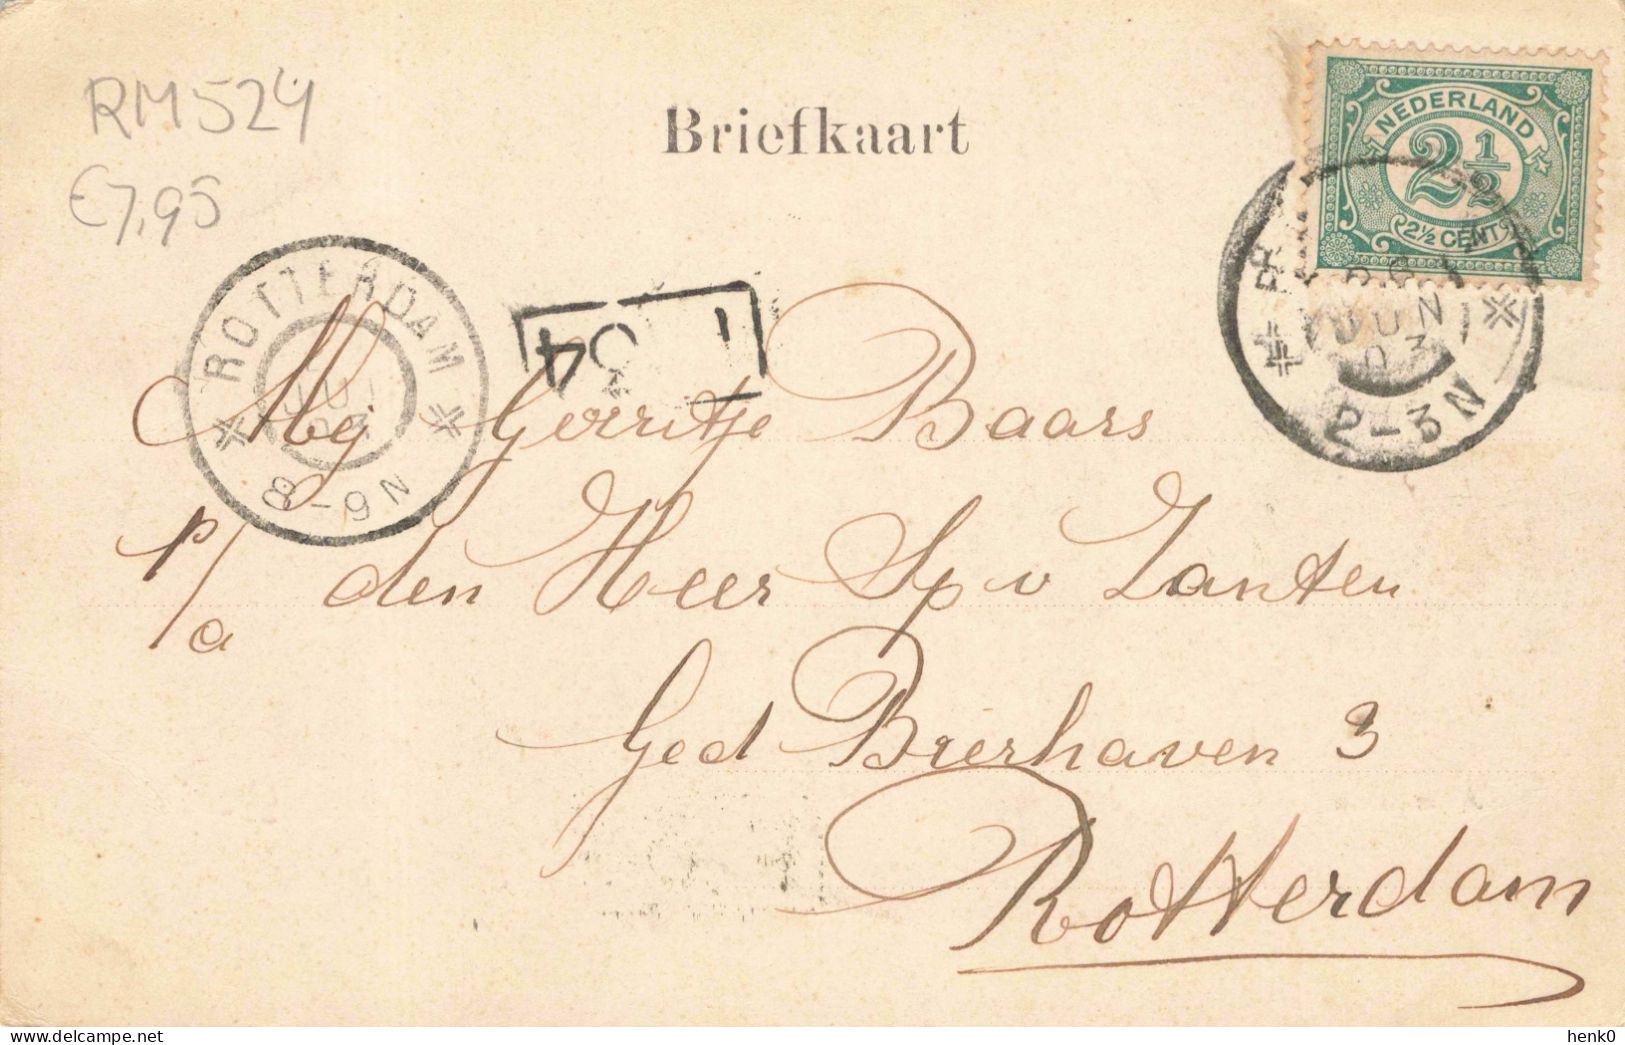 RM524
€7,95
Briefkaart
NEDERLAND
2½
2½ CENT
JUN
03
2-3N
ROTTERDAM
8-9N
Mej Gerritje Baars
p/a den Heer Sp v Zanten
Ged Bierhaven 3
Rotterdam
henk0